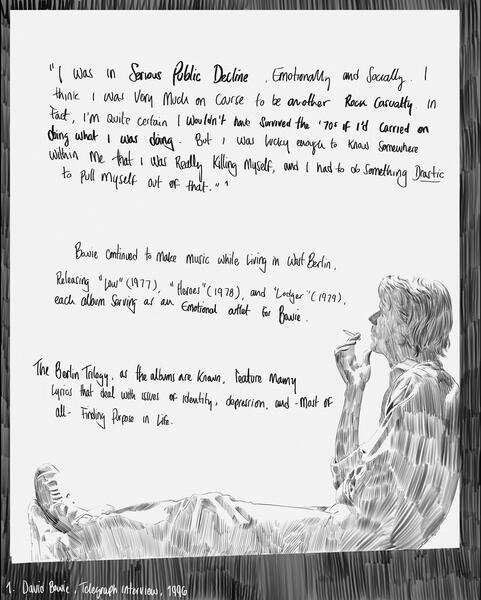 "I was in Serious Public Decline, Emotionally and Socially. I
think I was Very Much on Course to be another Rock Casualty. In
Fact, I'm Quite Certain I Wouldn't have Survived the '70s if I'd Carried on
doing what I was doing. But I was lucky enough to Know Somewhere
within Me that I was Really Killing Myself, and I had to do Something Drastic
to Pull Myself out of that." 1
Bowie Continued to Make Music while Living in West Berlin,
Releasing "Low" (1977), "Heroes" (1978), and "Lodger" (1979),
each album Serving as an Emotional outlet for Bowie.
The Berlin Trilogy, as the albums are Known, Feature Many
Lyrics that deal with issues of identity, depression, and -Most of
all- Finding Purpose in Life.
1. David Bowie, Telegraph interview, 1996